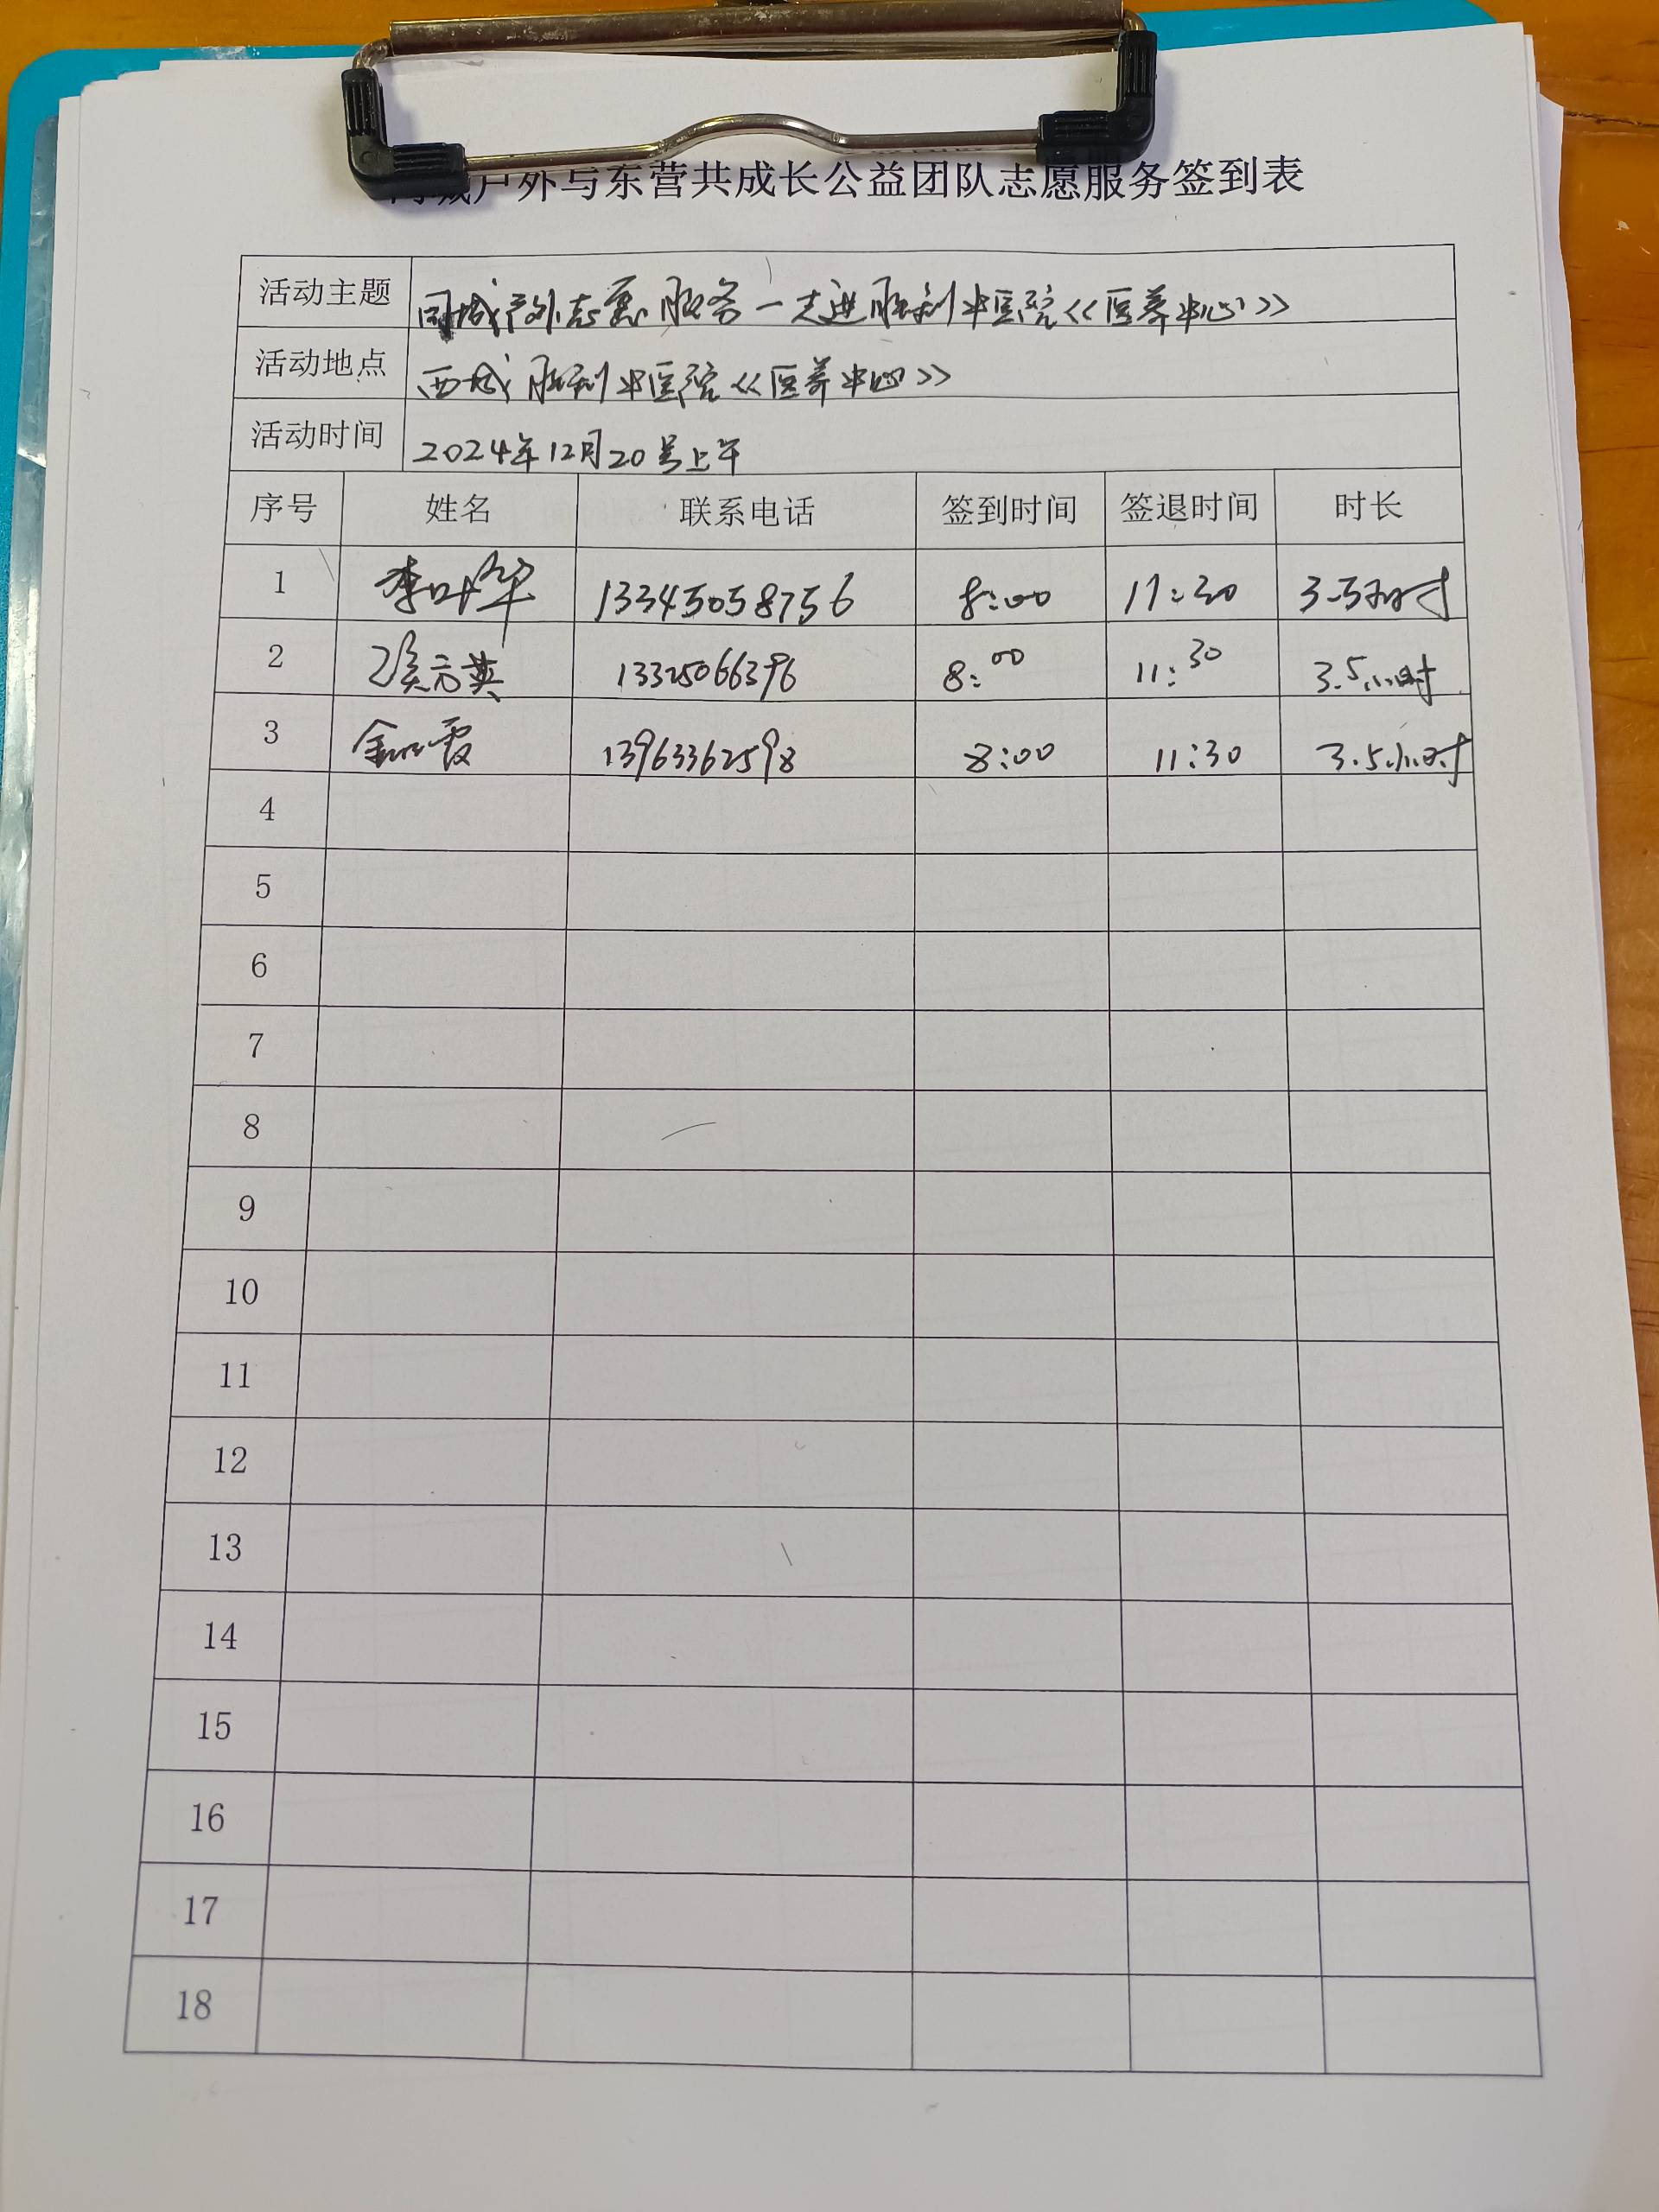 同城户外与东营共成长公益团队志愿服务签到表
活动主题 同城户外志愿服务一走进胜利中医院<<医养中心>>
活动地点 西城胜利中医院<<医养中心>>
活动时间 2024年12月20号上午
序号 姓名 联系电话 签到时间 签退时间 时长
1 李叶华 13345058756 8:00 11:30 3.5小时
2 侯元英 13325066396 8:00 11:30 3.5小时
3 霞 13963362598 8:00 11:30 3.5小时
4
5
6
7
8
9
10
11
12
13
14
15
16
17
18